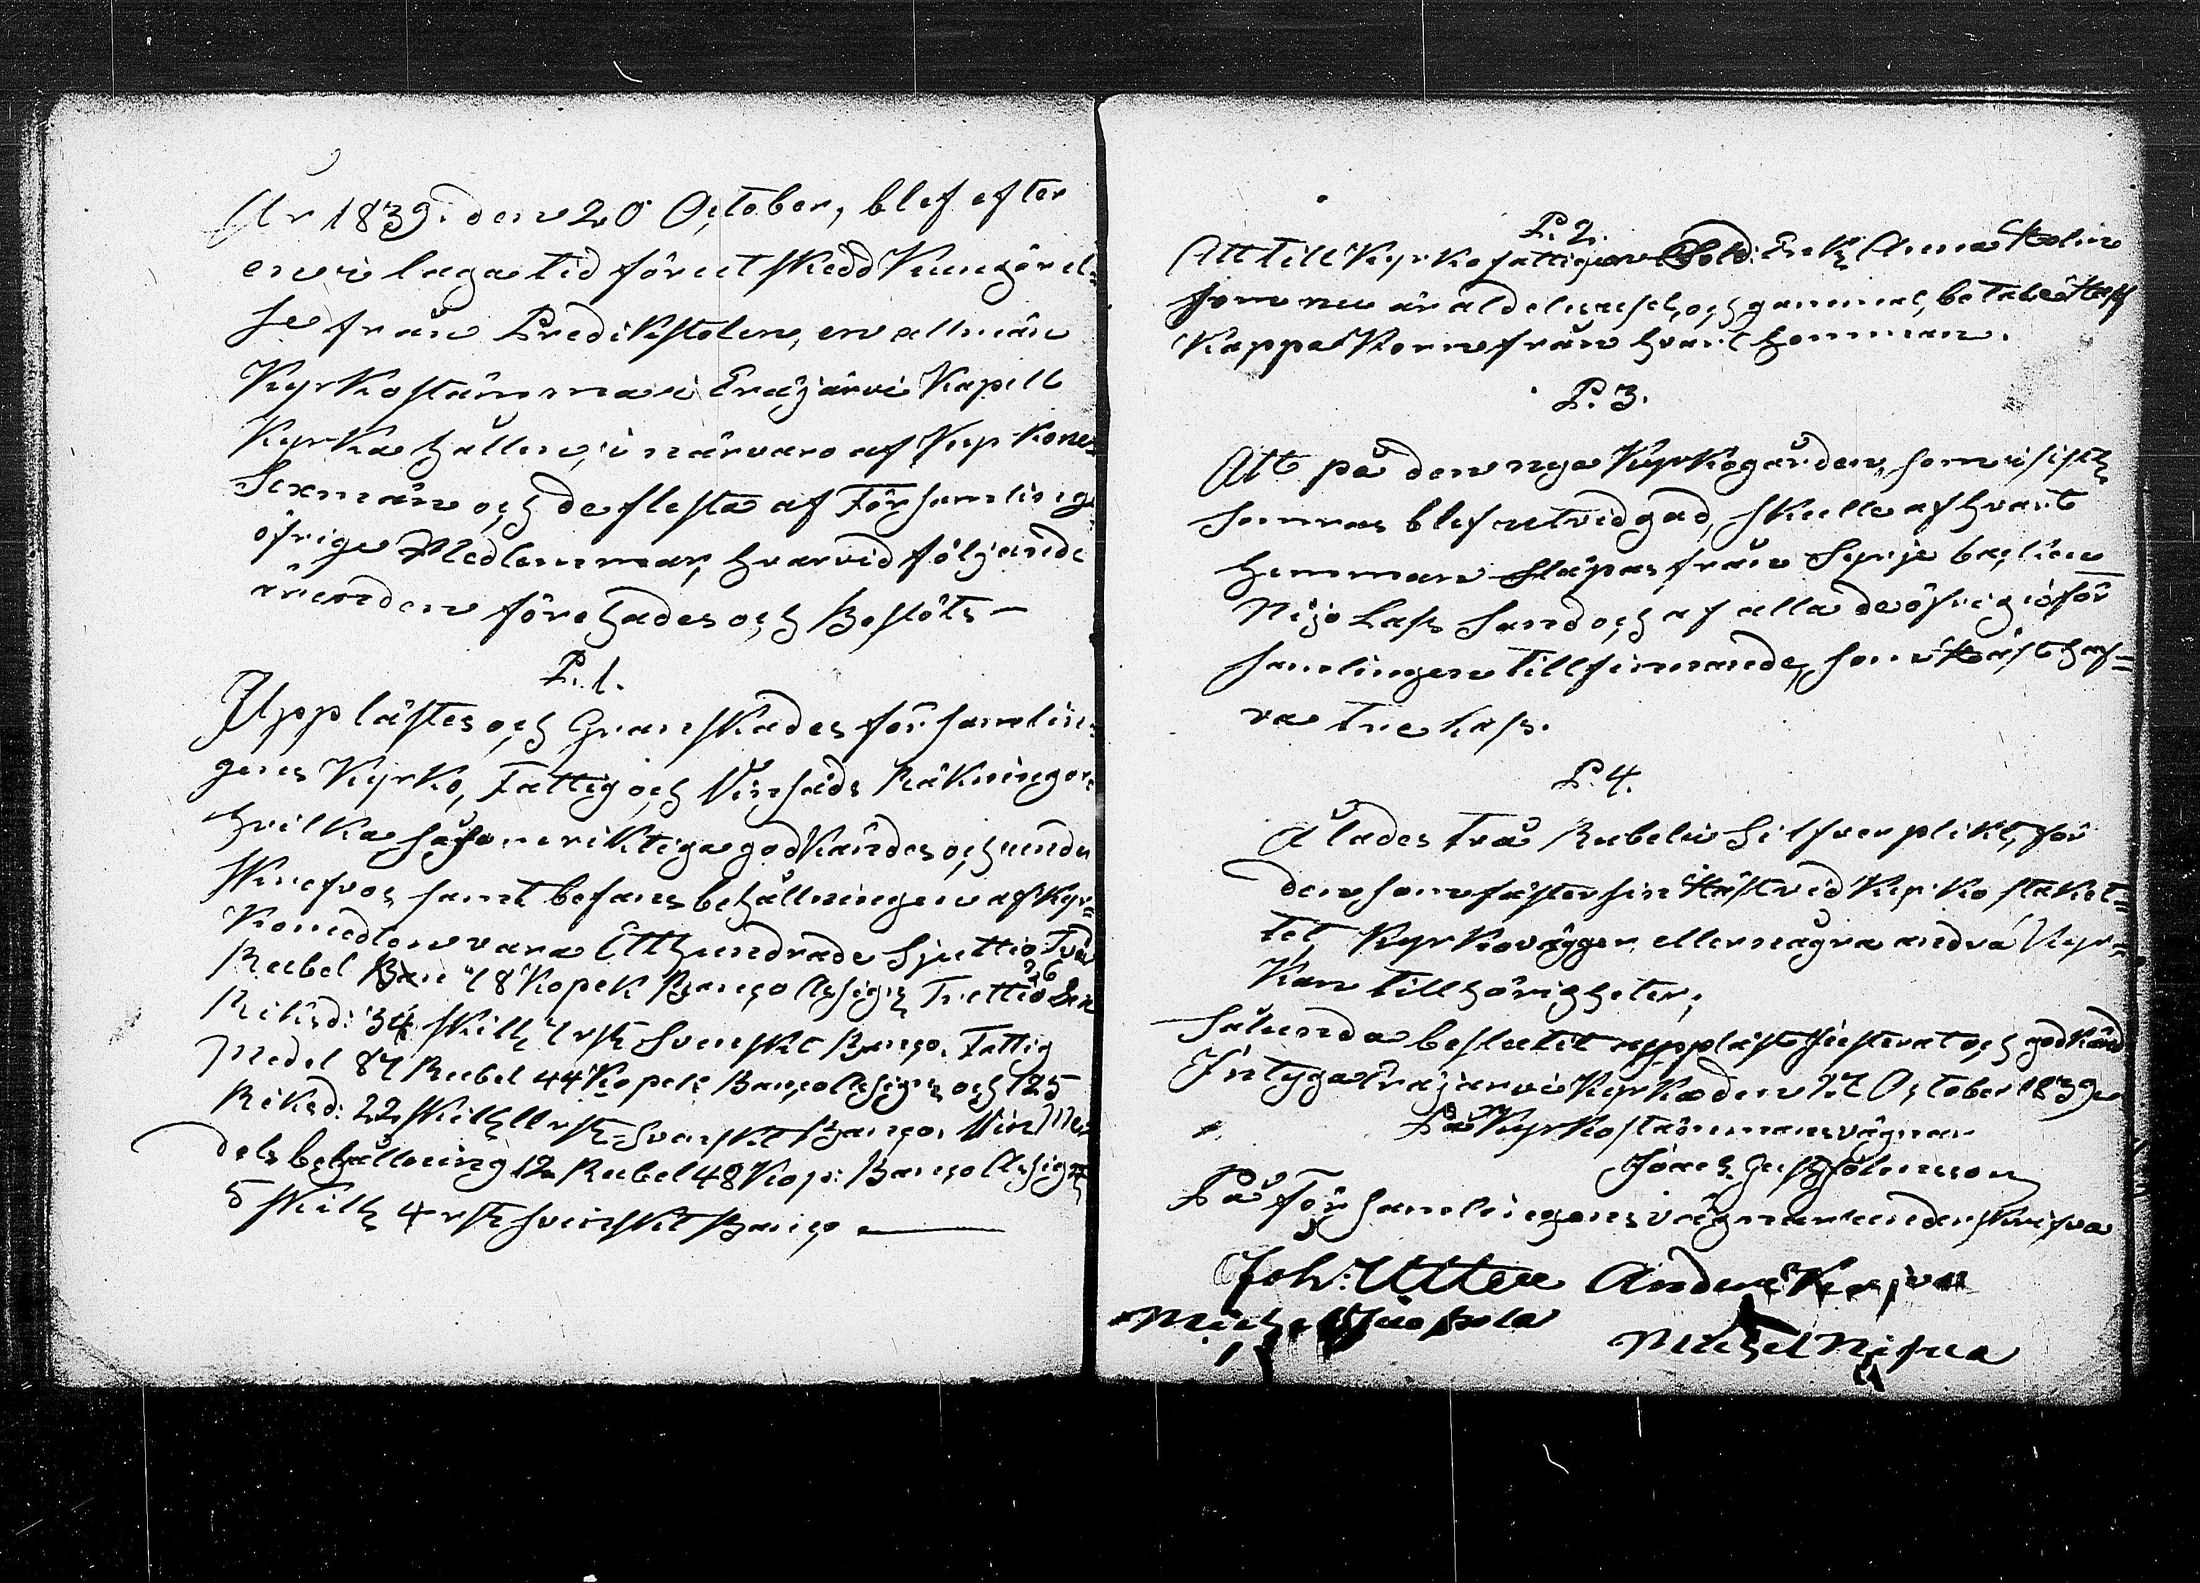 År 1839. den 20 October, blef efter
en i laga tid förut skedd Kungörel=
se från Predikstolen, en allmän
Kyrkostämma i Eräjärvi Kapell
Kyrka hållen, i närvaro af Kyrkones
Sexmän och de flesta af Församling
öfrige Medlemmar, hvarvid följande
ärenden förehades och Beslöts –
P. 1.
Upplästes och Granskades församlin=
genes Kyrko, Fattig och Vinsäds Räkningar,
hvilka såsom riktiga godkändes och under
skrefvos samt befans behållningen af Kyr=
komedlen vara Etthundrade Sjuttio Två
Rubel 48 Kopek Banco Assign Trettio Sex
36
Riksd: 34 skill 4 rst Svenskt Banco. Fattig
Medel 87 Rubel 44 Kopek Banco Assign och 125
Riksd: 22 skill 11 rst Svenskt Banco. Vin Me=
dels behållning 12 Rubel 48 Kop: Banco Assign
5 skill 4 rst Svenskt Banco
P. 2.
Att till Kyrkofattigen Sold: Enk Anna Holm
som nu är aldeles usel och gammal, betala
Kappa Korn från hvart hemman.
P. 3.
Att på den nya Kyrkogården, som sistl
sommar blef utvidgad, skulle af hvart
hemman släpas från Syrjä backen
Nijo Lass Sand och af alla de öfrig i för
samlingen tillfinnande, som Häst haf=
va Tre Lass.
P. 4.
Ålades två Rubels Silfver plikt, för
den som fäster sin Häst vid Kyrko staket=
tet Kyrkovägger eller några andra Kyr=
kan tillhörigheter,
Sålunda beslutit uppläst justerat och godkänd
Intyga Eräjärvi Kyrka den 27 October 1839
På Kyrkostämmans vägnar
På Församlingens vägnar underskrifva
Joh: Uttu Anders
Michel
Michel